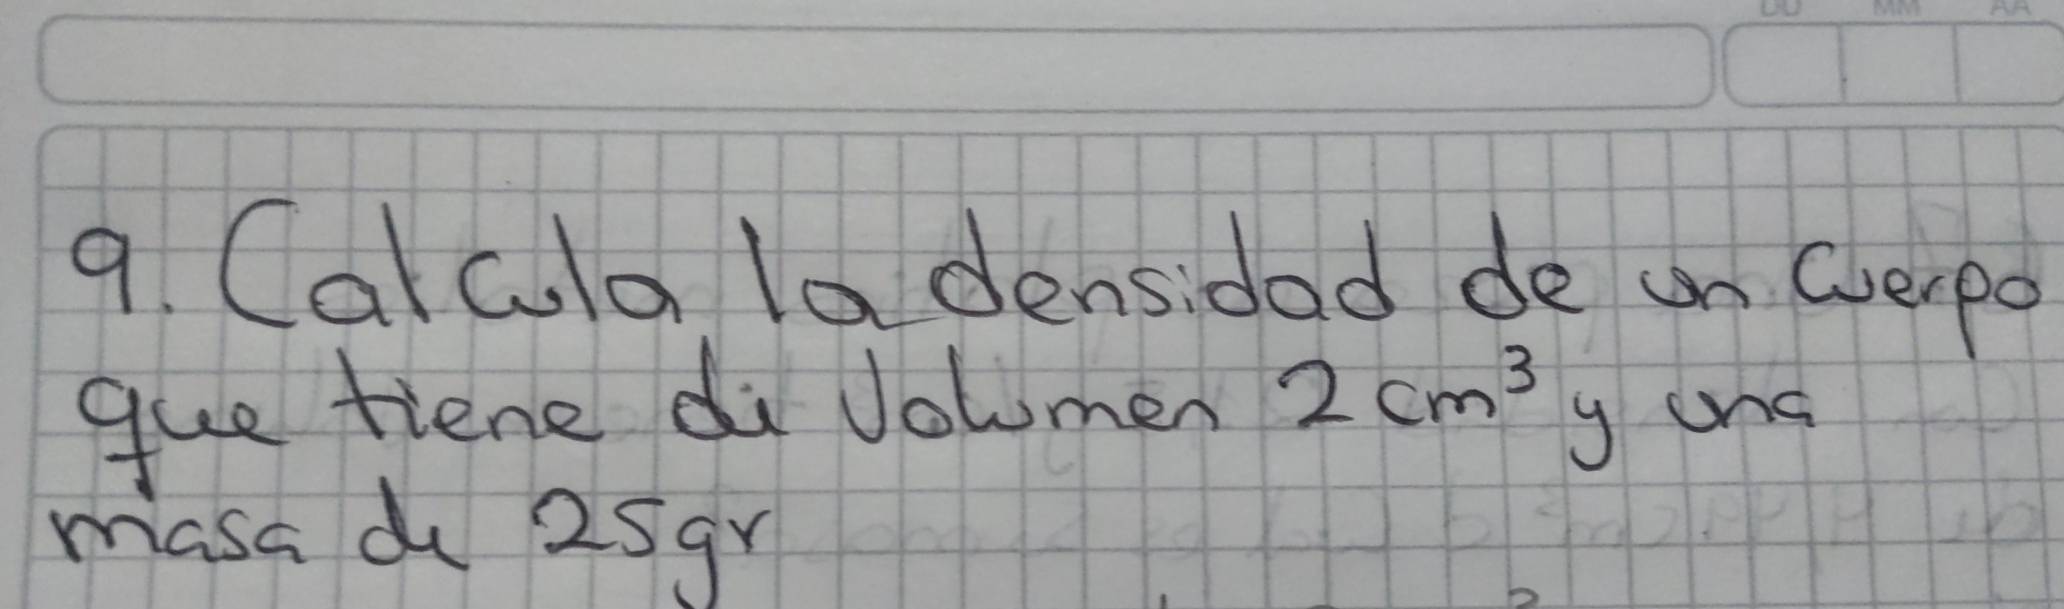 DD MM AA
9. Calcula la densidad de un cuerpo
que tiene di volumen 2 cm³ y una
masa de 25gr